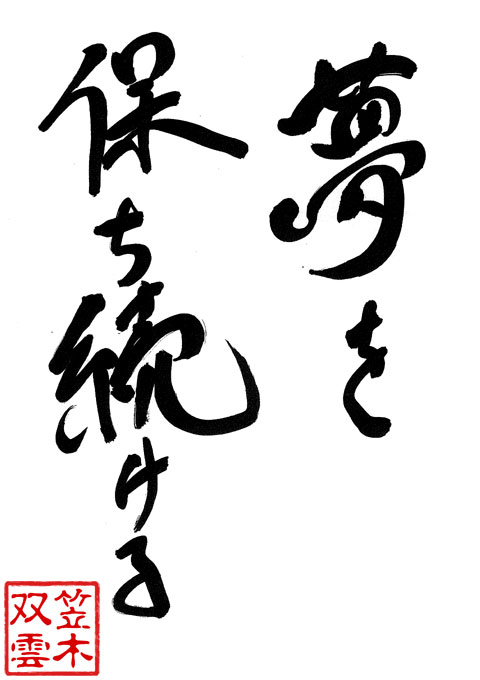 夢を
保ち続ける
笠木
双雲